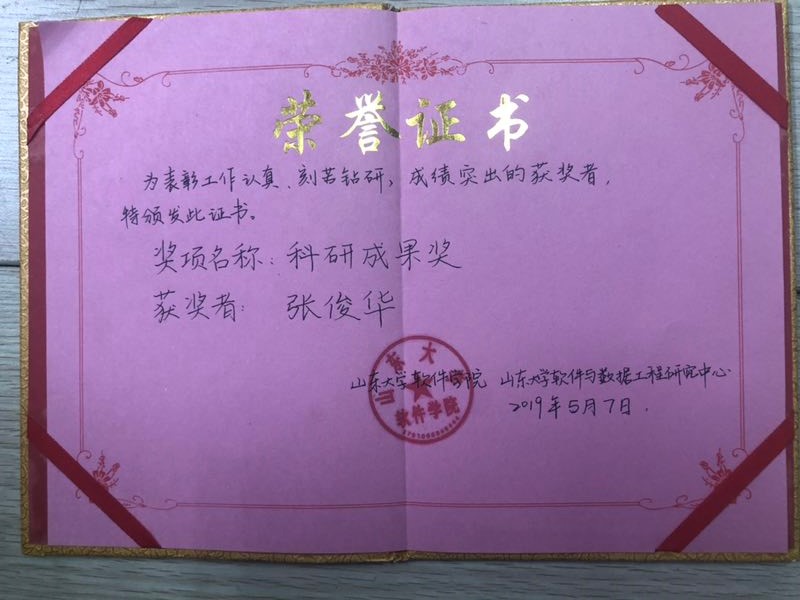 荣誉证书
为表彰工作认真、刻苦钻研,成绩突出的获奖者,
特颁发此证书。
奖项名称:科研成果奖
获奖者: 张俊华
山东大学软件学院 山东大学软件与数据工程研究中心
2019年5月7日.
山东大
软件学院